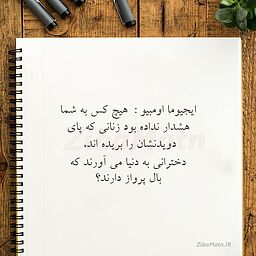 ایجیوما اومبیو : هیچ کس به شما
هشدار نداده بود زنانی که پای
دویدنشان را بریده اند،
دخترانی به دنیا می آورند که
بال پرواز دارند؟
ZibaMatn.IR